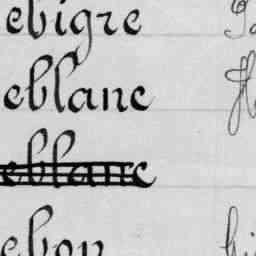 ebigre
eblanc
eblanc
ebon